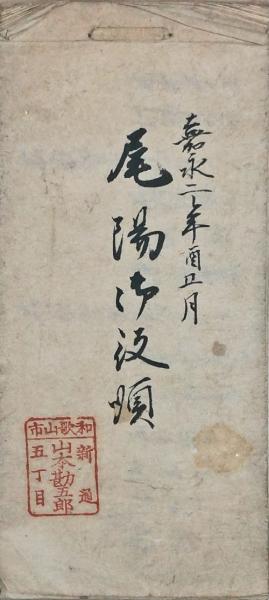 嘉永二己年酉五月
尾陽御役順
和歌山市
新通
山本勘五郎
五丁目